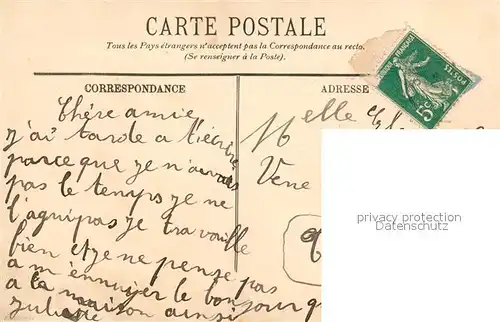 CARTE POSTALE
Tous les Pays étrangers n'acceptent pas la Correspondance au recto.
(Se renseigner à la Poste).
CORRESPONDANCE
ADRESSE
5c
Chère amie
j'ai tarde a t'écrire
parce que je n'avais
pas le temps je ne
pas je travaille
bien et je ne pense pas
a m'ennuyer le bonjour
a la maison ainsi
Juliette
Melle
privacy protection
Datenschutz